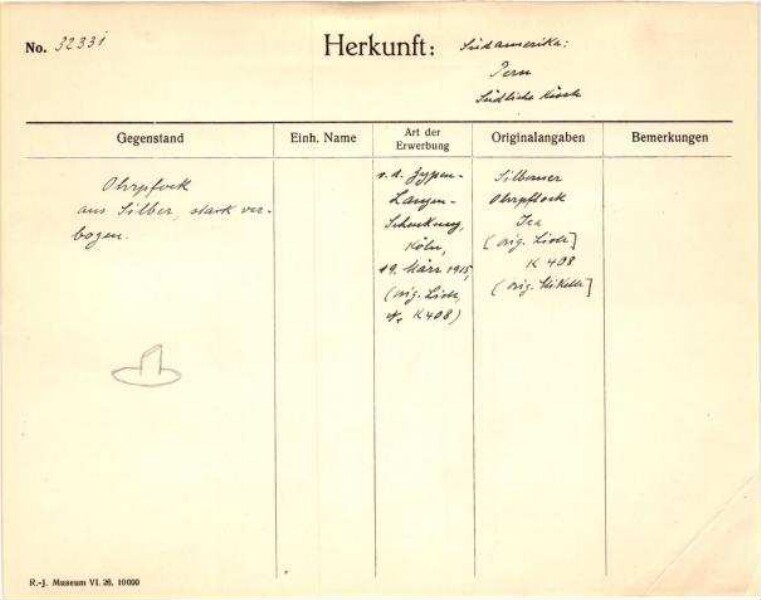 No. 32331
Herkunft: Südamerika:
Peru
Südliche Küste
Gegenstand
Einh. Name
Art der
Erwerbung
Originalangaben
Bemerkungen
Ohrpflock
aus Silber, stark ver-
bogen.
v. d. Zypen-
Langen-
Schenkung,
Köln,
19. März 1915,
(orig. Liste,
Nr K 408)
Silberner
Ohrpflock
Ica
(orig. Liste]
K 408
(orig.
R.-J. Museum VI. 26. 10000